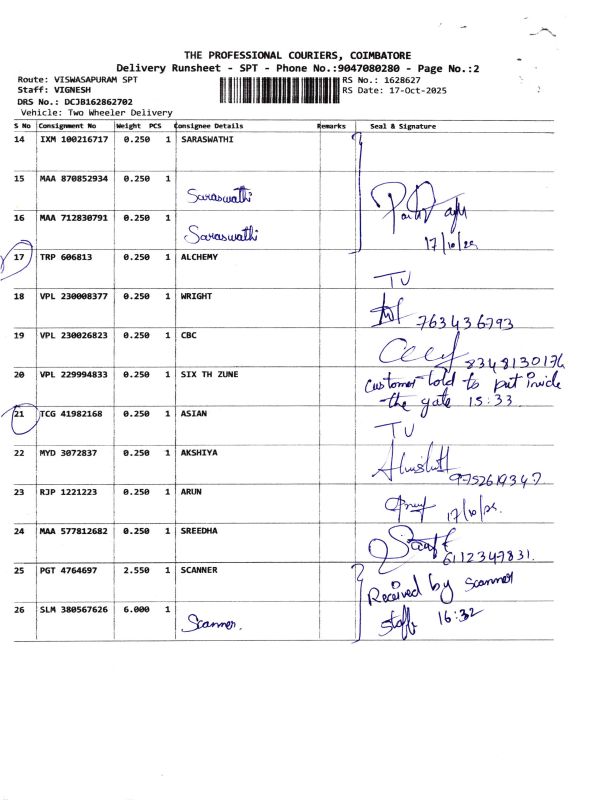 THE PROFESSIONAL COURIERS, COIMBATORE
Delivery Runsheet - SPT - Phone No.:9047080280 - Page No.:2
Route: VISWASAPURAM SPT
RS No.: 1628627
Staff: VIGNESH
RS Date: 17-Oct-2025
DRS No.: DCJB162862702
Vehicle: Two Wheeler Delivery
S No Consignment No Weight PCS Consignee Details Remarks Seal & Signature
14 IXM 100216717 0.250 1 SARASWATHI
15 MAA 870852934 0.250 1 Saraswathi
16 MAA 712830791 0.250 1 Saraswathi
17/10/25
17 TRP 606813 0.250 1 ALCHEMY TV
18 VPL 230008377 0.250 1 WRIGHT 763436793
19 VPL 230026823 0.250 1 CBC 8348130176
20 VPL 229994833 0.250 1 SIX TH ZUNE customer told to put inside
the gate 15:33
21 TCG 41982168 0.250 1 ASIAN TV
22 MYD 3072837 0.250 1 AKSHIYA 9752619347
23 RJP 1221223 0.250 1 ARUN 17/10/25.
24 MAA 577812682 0.250 1 SREEDHA 6112347831.
25 PGT 4764697 2.550 1 SCANNER Received by scanner
26 SLM 380567626 6.000 1 Scanner. staff 16:32